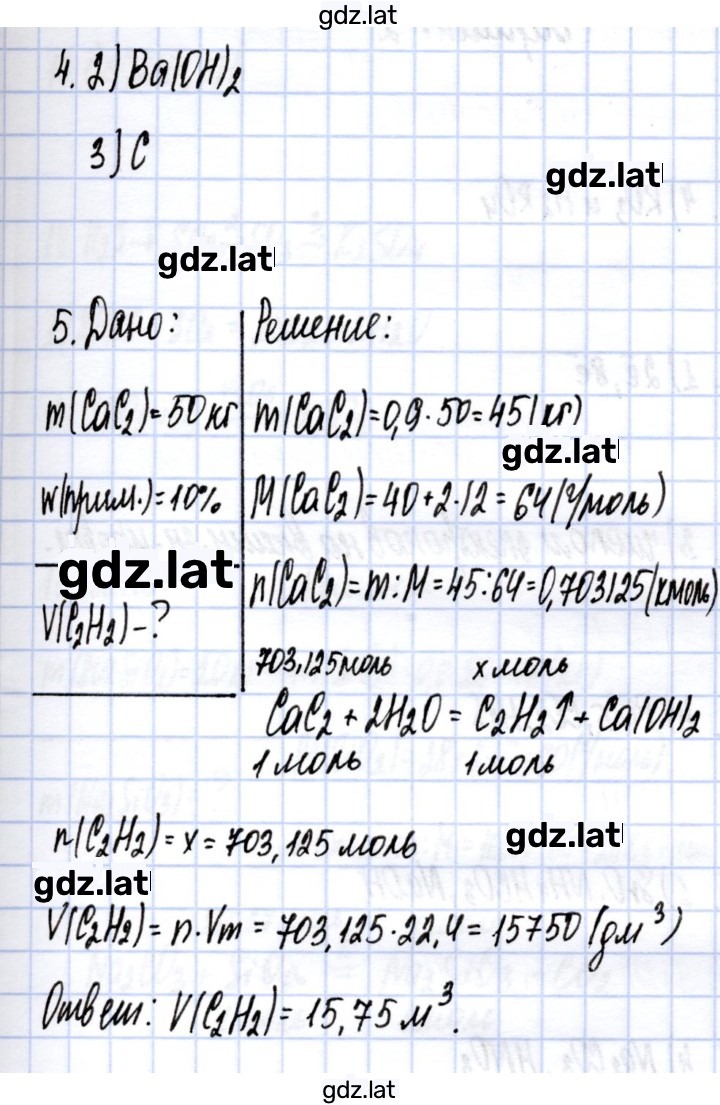 gdz.lat
4. 2) Ba(OH)₂
3) C
gdz.lat
gdz.lat
5. Дано:
m(CaC₂) = 50 кг
w(прим.) = 10%
gdz.lat
V(C₂H₂) - ?
Решение:
m(CaC₂) = 0,9 · 50 = 45 (кг)
gdz.lat
M(CaC₂) = 40 + 2 · 12 = 64 (г/моль)
n(CaC₂) = m : M = 45 : 64 = 0,703125 (кмоль)
703,125 моль x моль
CaC₂ + 2H₂O = C₂H₂↑ + Ca(OH)₂
1 моль 1 моль
gdz.lat
n(C₂H₂) = x = 703,125 моль
gdz.lat
V(C₂H₂) = n · Vm = 703,125 · 22,4 = 15750 (дм³)
Ответ: V(C₂H₂) = 15,75 м³.
gdz.lat